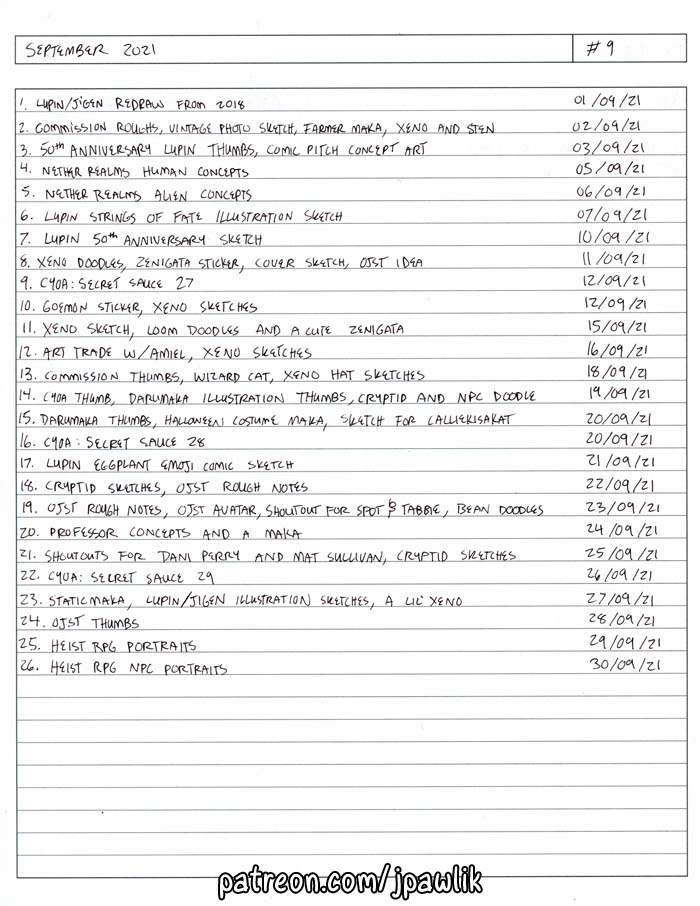 SEPTEMBER 2021 #9
1. LUPIN/JIGEN REDRAW FROM 2018 01/09/21
2. COMMISSION ROUGHS, VINTAGE PHOTO SKETCH, FARMER MAKA, XENO AND STEN 02/09/21
3. 50th ANNIVERSARY LUPIN THUMBS, COMIC PITCH CONCEPT ART 03/09/21
4. NETHER REALMS HUMAN CONCEPTS 05/09/21
5. NETHER REALMS ALIEN CONCEPTS 06/09/21
6. LUPIN STRINGS OF FATE ILLUSTRATION SKETCH 07/09/21
7. LUPIN 50th ANNIVERSARY SKETCH 10/09/21
8. XENO DOODLES, ZENIGATA STICKER, COVER SKETCH, OJST IDEA 11/09/21
9. CYOA: SECRET SAUCE 27 12/09/21
10. GOEMON STICKER, XENO SKETCHES 12/09/21
11. XENO SKETCH, LOOM DOODLES AND A CUTE ZENIGATA 15/09/21
12. ART TRADE W/AMIEL, XENO SKETCHES 16/09/21
13. COMMISSION THUMBS, WIZARD CAT, XENO HAT SKETCHES 18/09/21
14. CYOA THUMB, DARUMAKA ILLUSTRATION THUMBS, CRYPTID AND NPC DOODLE 19/09/21
15. DARUMAKA THUMBS, HALLOWEEN COSTUME MAKA, SKETCH FOR CALLIEKISAKAT 20/09/21
16. CYOA: SECRET SAUCE 28 20/09/21
17. LUPIN EGGPLANT EMOJI COMIC SKETCH 21/09/21
18. CRYPTID SKETCHES, OJST ROUGH NOTES 22/09/21
19. OJST ROUGH NOTES, OJST AVATAR, SHOUTOUT FOR SPOT & TABBIE, BEAN DOODLES 23/09/21
20. PROFESSOR CONCEPTS AND A MAKA 24/09/21
21. SHOUTOUTS FOR DANI PERRY AND MAT SULLIVAN, CRYPTID SKETCHES 25/09/21
22. CYOA: SECRET SAUCE 29 26/09/21
23. STATICMAKA, LUPIN/JIGEN ILLUSTRATION SKETCHES, A LIL' XENO 27/09/21
24. OJST THUMBS 28/09/21
25. HEIST RPG PORTRAITS 29/09/21
26. HEIST RPG NPC PORTRAITS 30/09/21
patreon.com/jpawlik